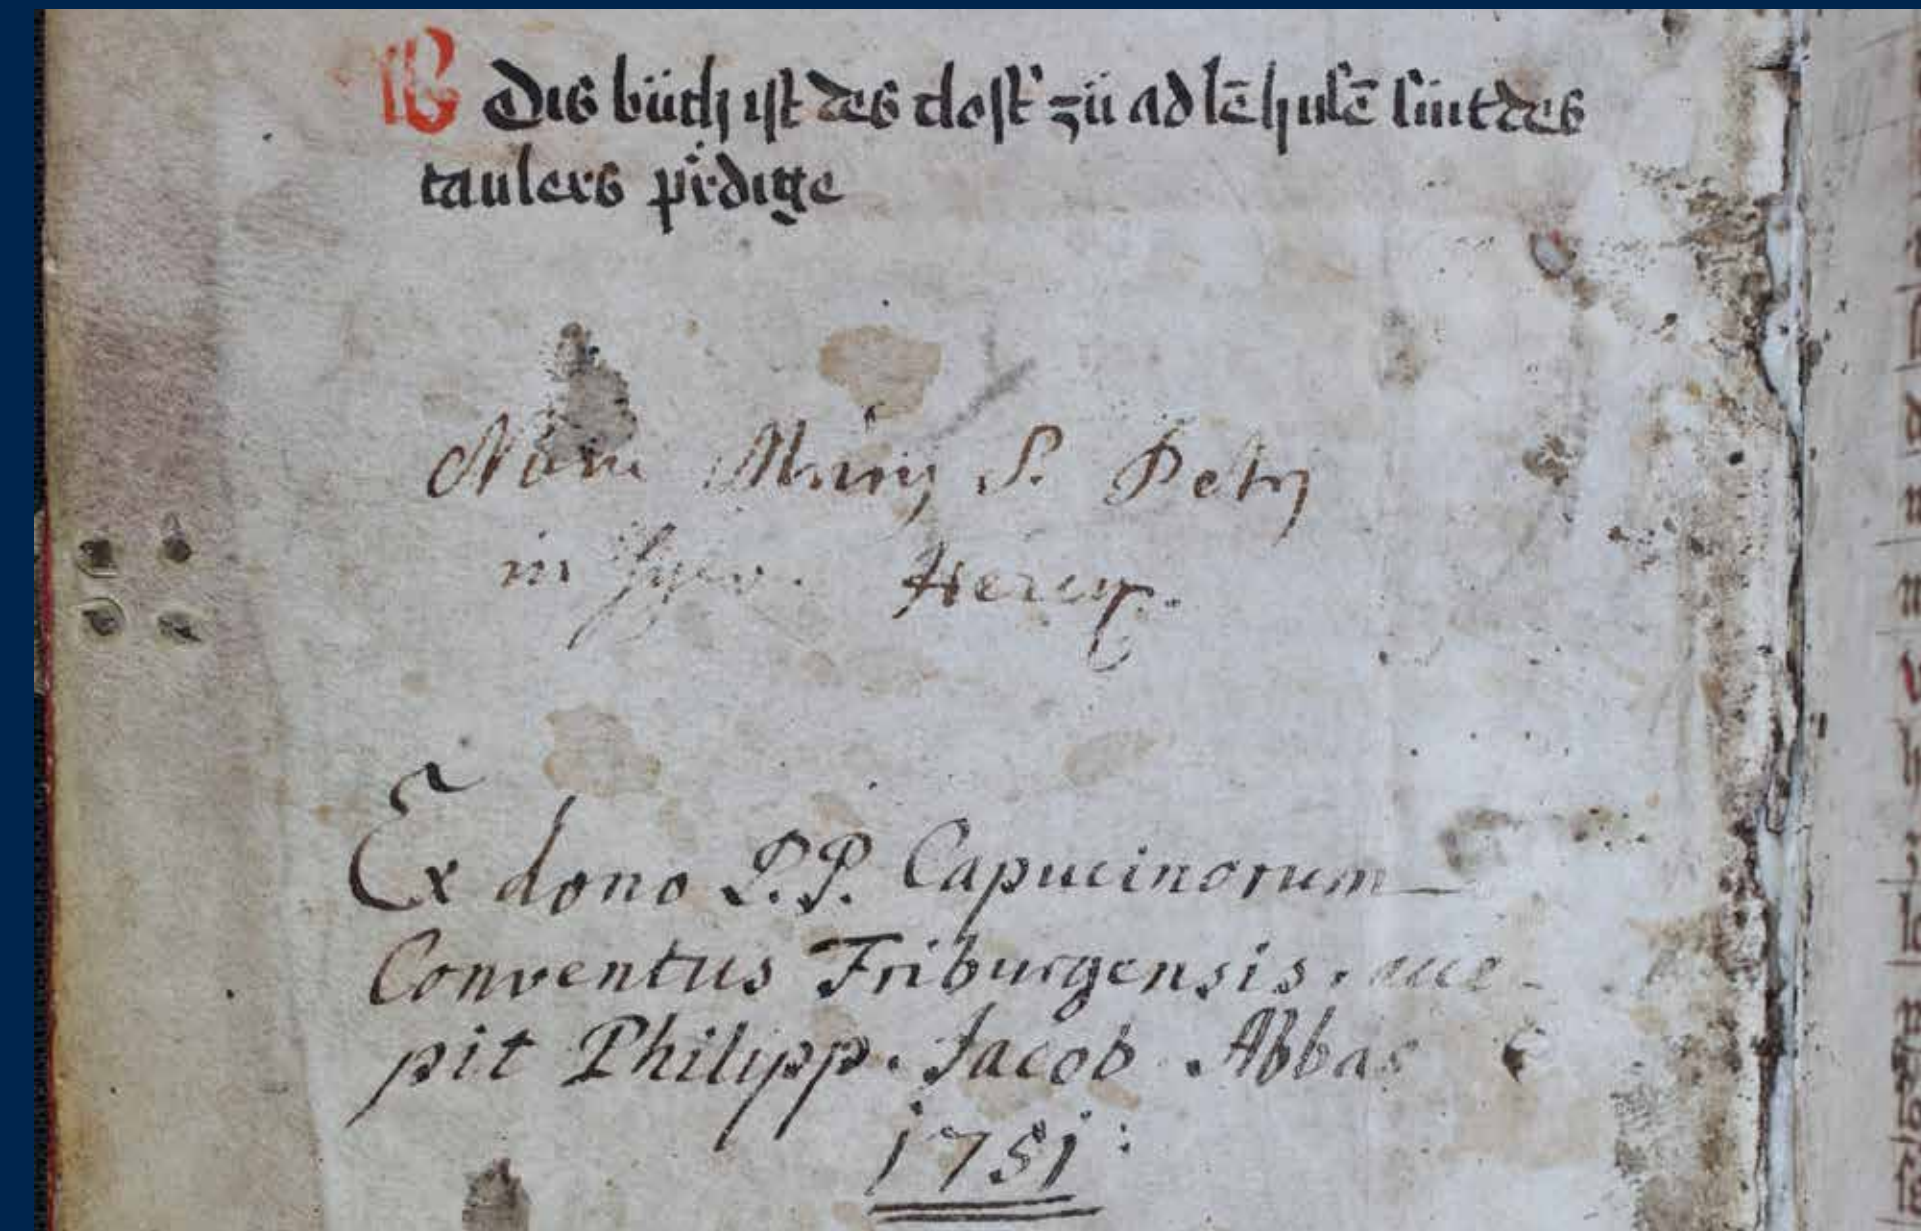 B Dis bůch ist des clost' zů adlēhusē sint des
taulers p'dige
Nunc Mrÿ S. Petrÿ
in Hercÿ.
Ex dono P.P. Capucinorum
Conventus Friburgensis. acce-
pit Philipp. Jacob Abbas
1751: